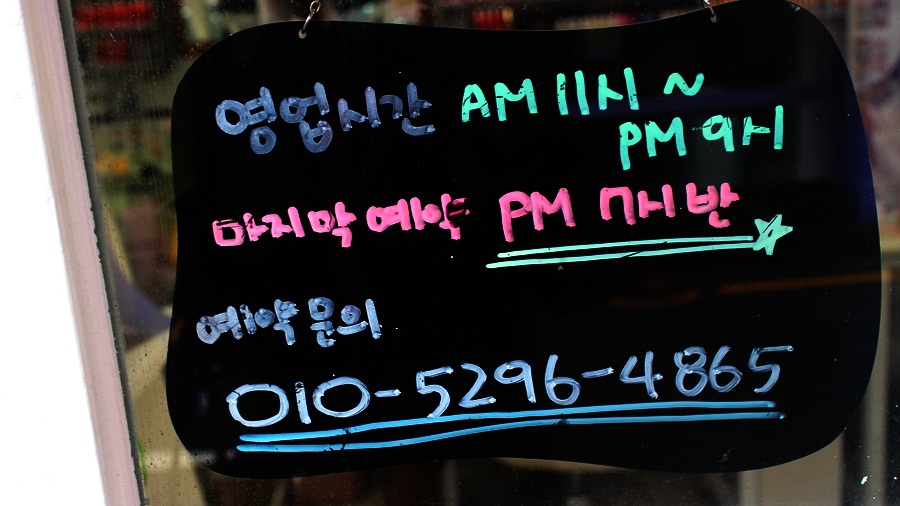 영업시간 AM 11시 ~
PM 9시
마지막 예약 PM 7시 반
예약문의
010-5296-4865